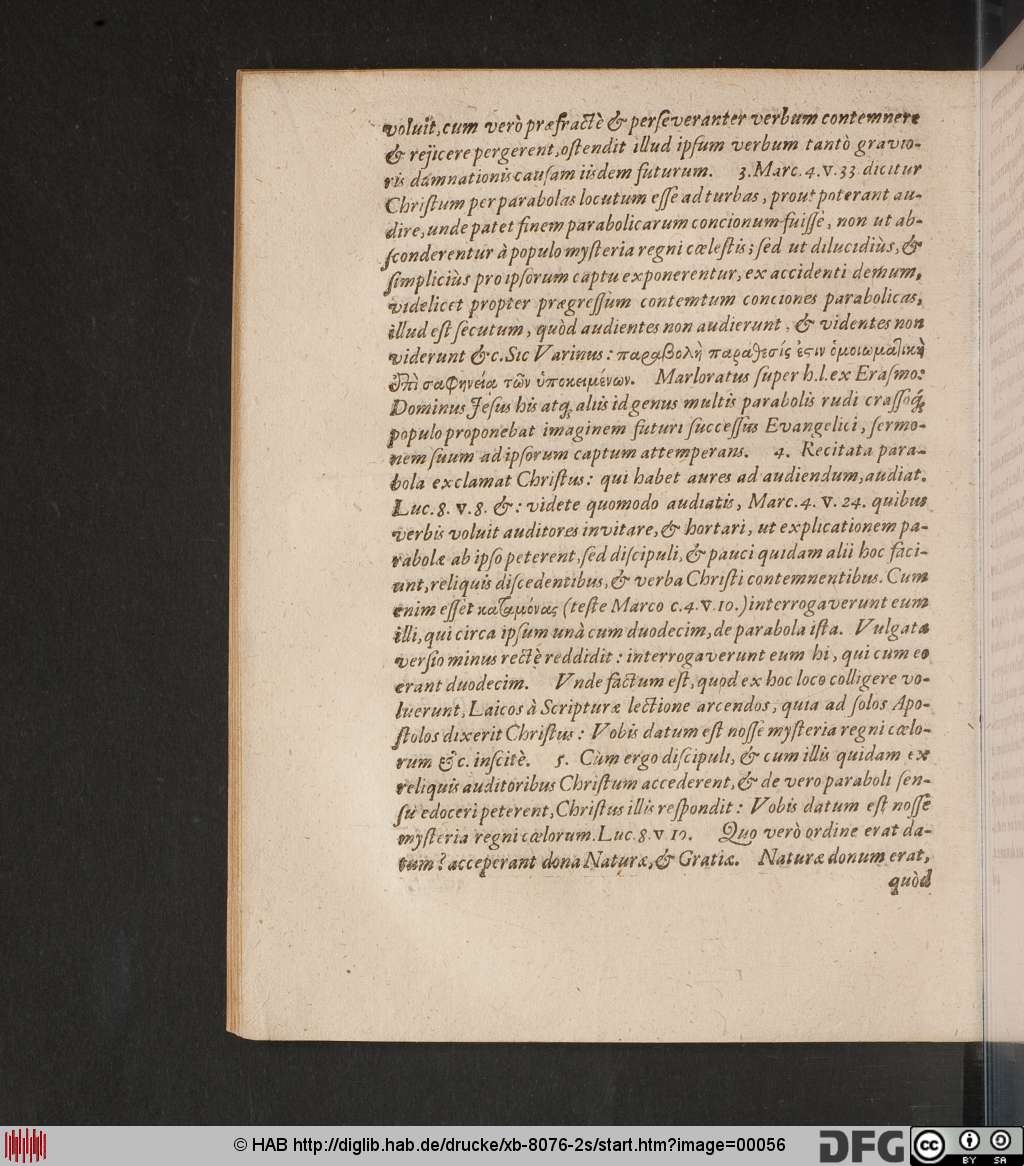 voluit, cum verò præfractè & perseveranter verbum contemnere
& rejicere pergerent, ostendit illud ipsum verbum tantò gravio-
ris damnationis causam iisdem futurum. 3. Marc. 4. v. 33 dicitur
Christum per parabolas locutum esse ad turbas, prout poterant au-
dire, unde patet finem parabolicarum concionum fuisse, non ut ab-
sconderentur à populo mysteria regni cœlestis; sed ut dilucidiùs, &
simpliciùs pro ipsorum captu exponerentur, ex accidenti demum,
videlicet propter prægressum contemtum conciones parabolicas,
illud est secutum, quòd audientes non audierunt, & videntes non
viderunt &c. Sic Varinus: παραβολὴ παραθεσίς ἐςιν ὁμοιωμαλικὴ
ἐπὶ σαφηνεία τῶν ὑποκειμένων. Marloratus super h. l. ex Erasmo:
Dominus Jesus his atq; aliis id genus multis parabolis rudi crassoq;
populo proponebat imaginem futuri successus Evangelici, sermo-
nem suum ad ipsorum captum attemperans. 4. Recitata para-
bola exclamat Christus: qui habet aures ad audiendum, audiat.
Luc. 8. v. 8. &: videte quomodo audiatis, Marc. 4. v. 24. quibus
verbis voluit auditores invitare, & hortari, ut explicationem pa-
rabolæ ab ipso peterent, sed discipuli, & pauci quidam alii hoc faci-
unt, reliquis discedentibus, & verba Christi contemnentibus. Cum
enim esset καταμόνας (teste Marco c. 4. v. 10.) interrogaverunt eum
illi, qui circa ipsum unà cum duodecim, de parabola ista. Vulgata
versio minus rectè reddidit: interrogaverunt eum hi, qui cum eo
erant duodecim. Vnde factum est, quod ex hoc loco colligere vo-
luerunt, Laicos à Scripturæ lectione arcendos, quia ad solos Apo-
stolos dixerit Christus: Vobis datum est nosse mysteria regni cœlo-
rum &c. inscitè. 5. Cùm ergo discipuli, & cum illis quidam ex
reliquis auditoribus Christum accederent, & de vero paraboli sen-
su edoceri peterent, Christus illis respondit: Vobis datum est nosse
mysteria regni cœlorum. Luc. 8. v 10. Quo verò ordine erat da-
tum? acceperant dona Naturæ, & Gratiæ. Naturæ donum erat,
quòd
© HAB http://diglib.hab.de/drucke/xb-8076-2s/start.htm?image=00056
DFG
cc BY SA